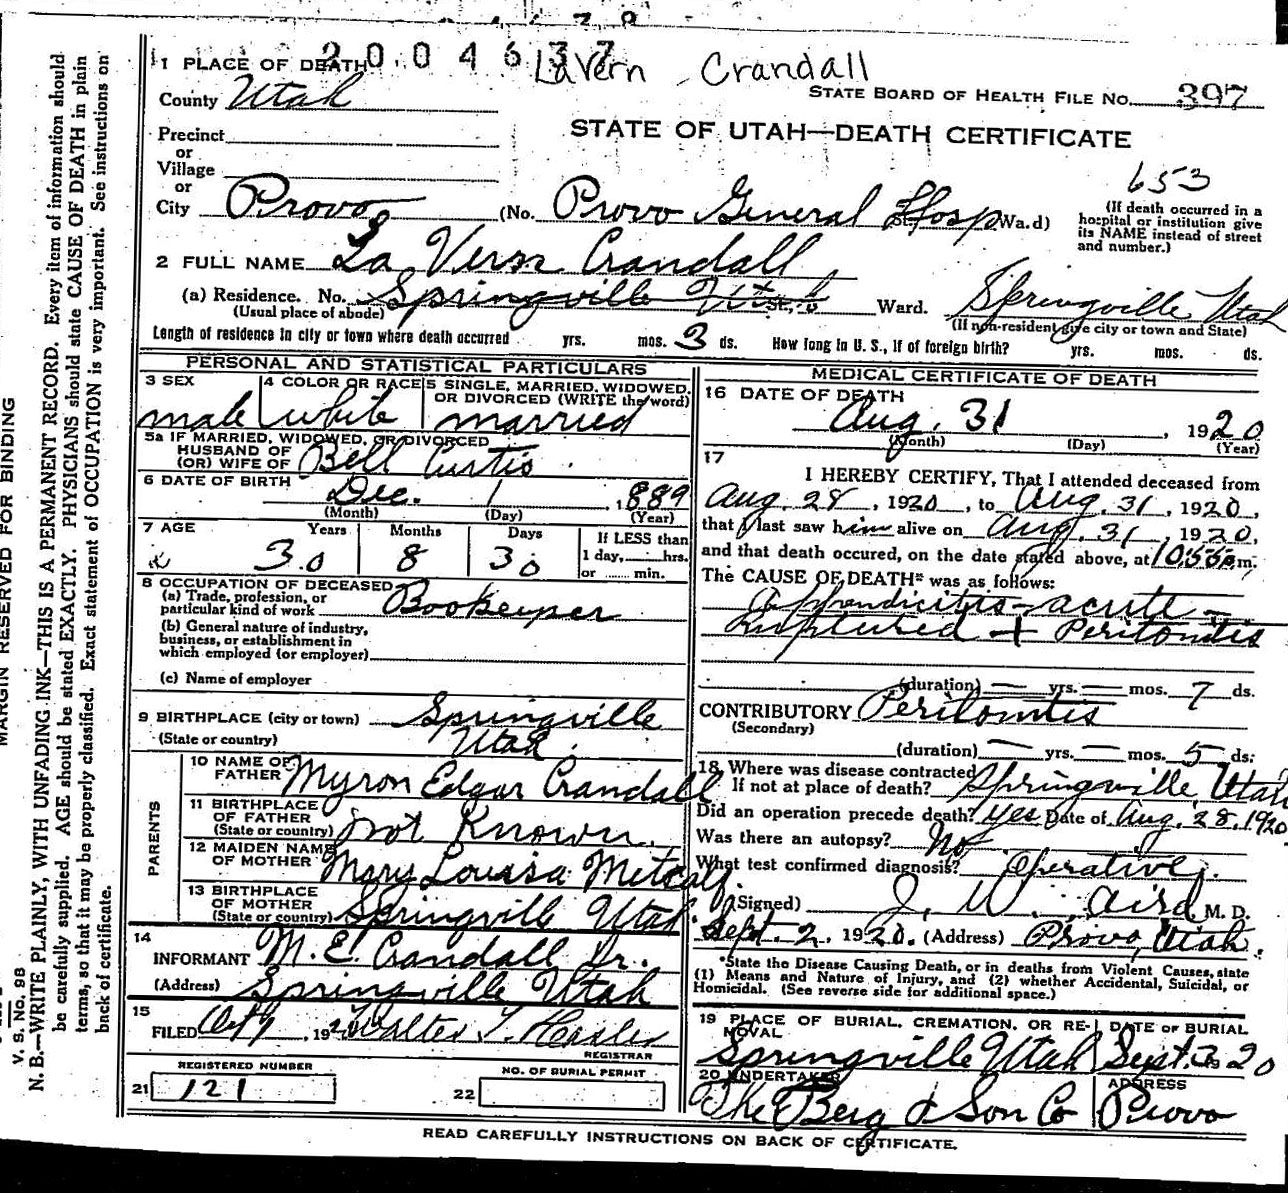 2004637
LaVern Crandall
1 PLACE OF DEATH
STATE BOARD OF HEALTH FILE No. 397
County Utah
STATE OF UTAH—DEATH CERTIFICATE
Precinct
or
Village
or
653
City Provo (No. Provo General Hosp St. Ward)
(If death occurred in a hospital or institution give its NAME instead of street and number.)
2 FULL NAME La Vern Crandall
(a) Residence. No. Springville Utah St., Ward. Springville Utah
(Usual place of abode) (If non-resident give city or town and State)
Length of residence in city or town where death occurred yrs. mos. 3 ds. How long in U. S., if of foreign birth? yrs. mos. ds.
PERSONAL AND STATISTICAL PARTICULARS
3 SEX 4 COLOR OR RACE 5 SINGLE, MARRIED, WIDOWED, OR DIVORCED (WRITE the word)
male white married
5a IF MARRIED, WIDOWED, OR DIVORCED
HUSBAND OF
(OR) WIFE OF Bell Curtis
6 DATE OF BIRTH Dec. 1, 1889
(Month) (Day) (Year)
7 AGE Years Months Days If LESS than
1 day, hrs.
or min.
30 8 30
8 OCCUPATION OF DECEASED
(a) Trade, profession, or
particular kind of work Bookeeper
(b) General nature of industry,
business, or establishment in
which employed (or employer)
(c) Name of employer
9 BIRTHPLACE (city or town) Springville
(State or country) Utah
PARENTS
10 NAME OF
FATHER Myron Edgar Crandall
11 BIRTHPLACE
OF FATHER
(State or country) not Known
12 MAIDEN NAME
OF MOTHER Mary Louisa Metcalf
13 BIRTHPLACE
OF MOTHER
(State or country) Springville Utah
14
INFORMANT M. E. Crandall
(Address) Springville Utah
15
FILED 1920 Walter T.
REGISTRAR
REGISTERED NUMBER
21 121
NO. OF BURIAL PERMIT
22
MEDICAL CERTIFICATE OF DEATH
16 DATE OF DEATH
Aug. 31, 1920
(Month) (Day) (Year)
17
I HEREBY CERTIFY, That I attended deceased from
Aug. 28, 1920, to Aug. 31, 1920,
that I last saw him alive on Aug. 31, 1920,
and that death occured, on the date stated above, at m.
The CAUSE OF DEATH* was as follows:
Appendicitis-acute-
Ruptured + Peritonitis
(duration) — yrs. — mos. 7 ds.
CONTRIBUTORY Peritonitis
(Secondary)
(duration) — yrs. — mos. 5 ds.
18 Where was disease contracted
If not at place of death? Springville Utah
Did an operation precede death? yes Date of Aug. 28, 1920
Was there an autopsy? No
What test confirmed diagnosis? Operative.
(Signed) J. W. Aird M. D.
Sept. 2, 1920. (Address) Provo, Utah.
*State the Disease Causing Death, or in deaths from Violent Causes, state
(1) Means and Nature of Injury, and (2) whether Accidental, Suicidal, or
Homicidal. (See reverse side for additional space.)
19 PLACE OF BURIAL, CREMATION, OR REMOVAL DATE OF BURIAL
Springville Utah Sept. 1920
20 UNDERTAKER ADDRESS
The Berg & Son Co Provo
READ CAREFULLY INSTRUCTIONS ON BACK OF CERTIFICATE.
MARGIN RESERVED FOR BINDING
V. S. No. 98
N. B.—WRITE PLAINLY, WITH UNFADING INK—THIS IS A PERMANENT RECORD. Every item of information should
be carefully supplied. AGE should be stated EXACTLY. PHYSICIANS should state CAUSE OF DEATH in plain
terms, so that it may be properly classified. Exact statement of OCCUPATION is very important. See instructions on
back of certificate.